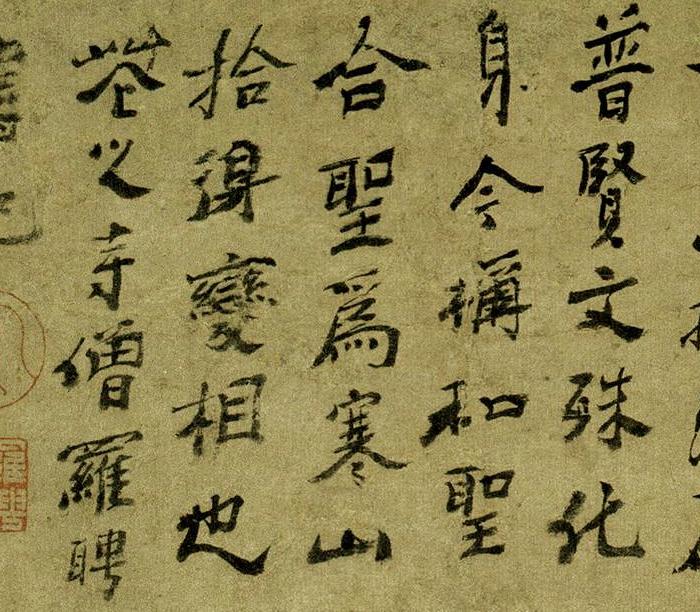 普賢文殊化
身今稱和聖
合聖為寒山
拾得變相也
花之寺僧羅聘
書記